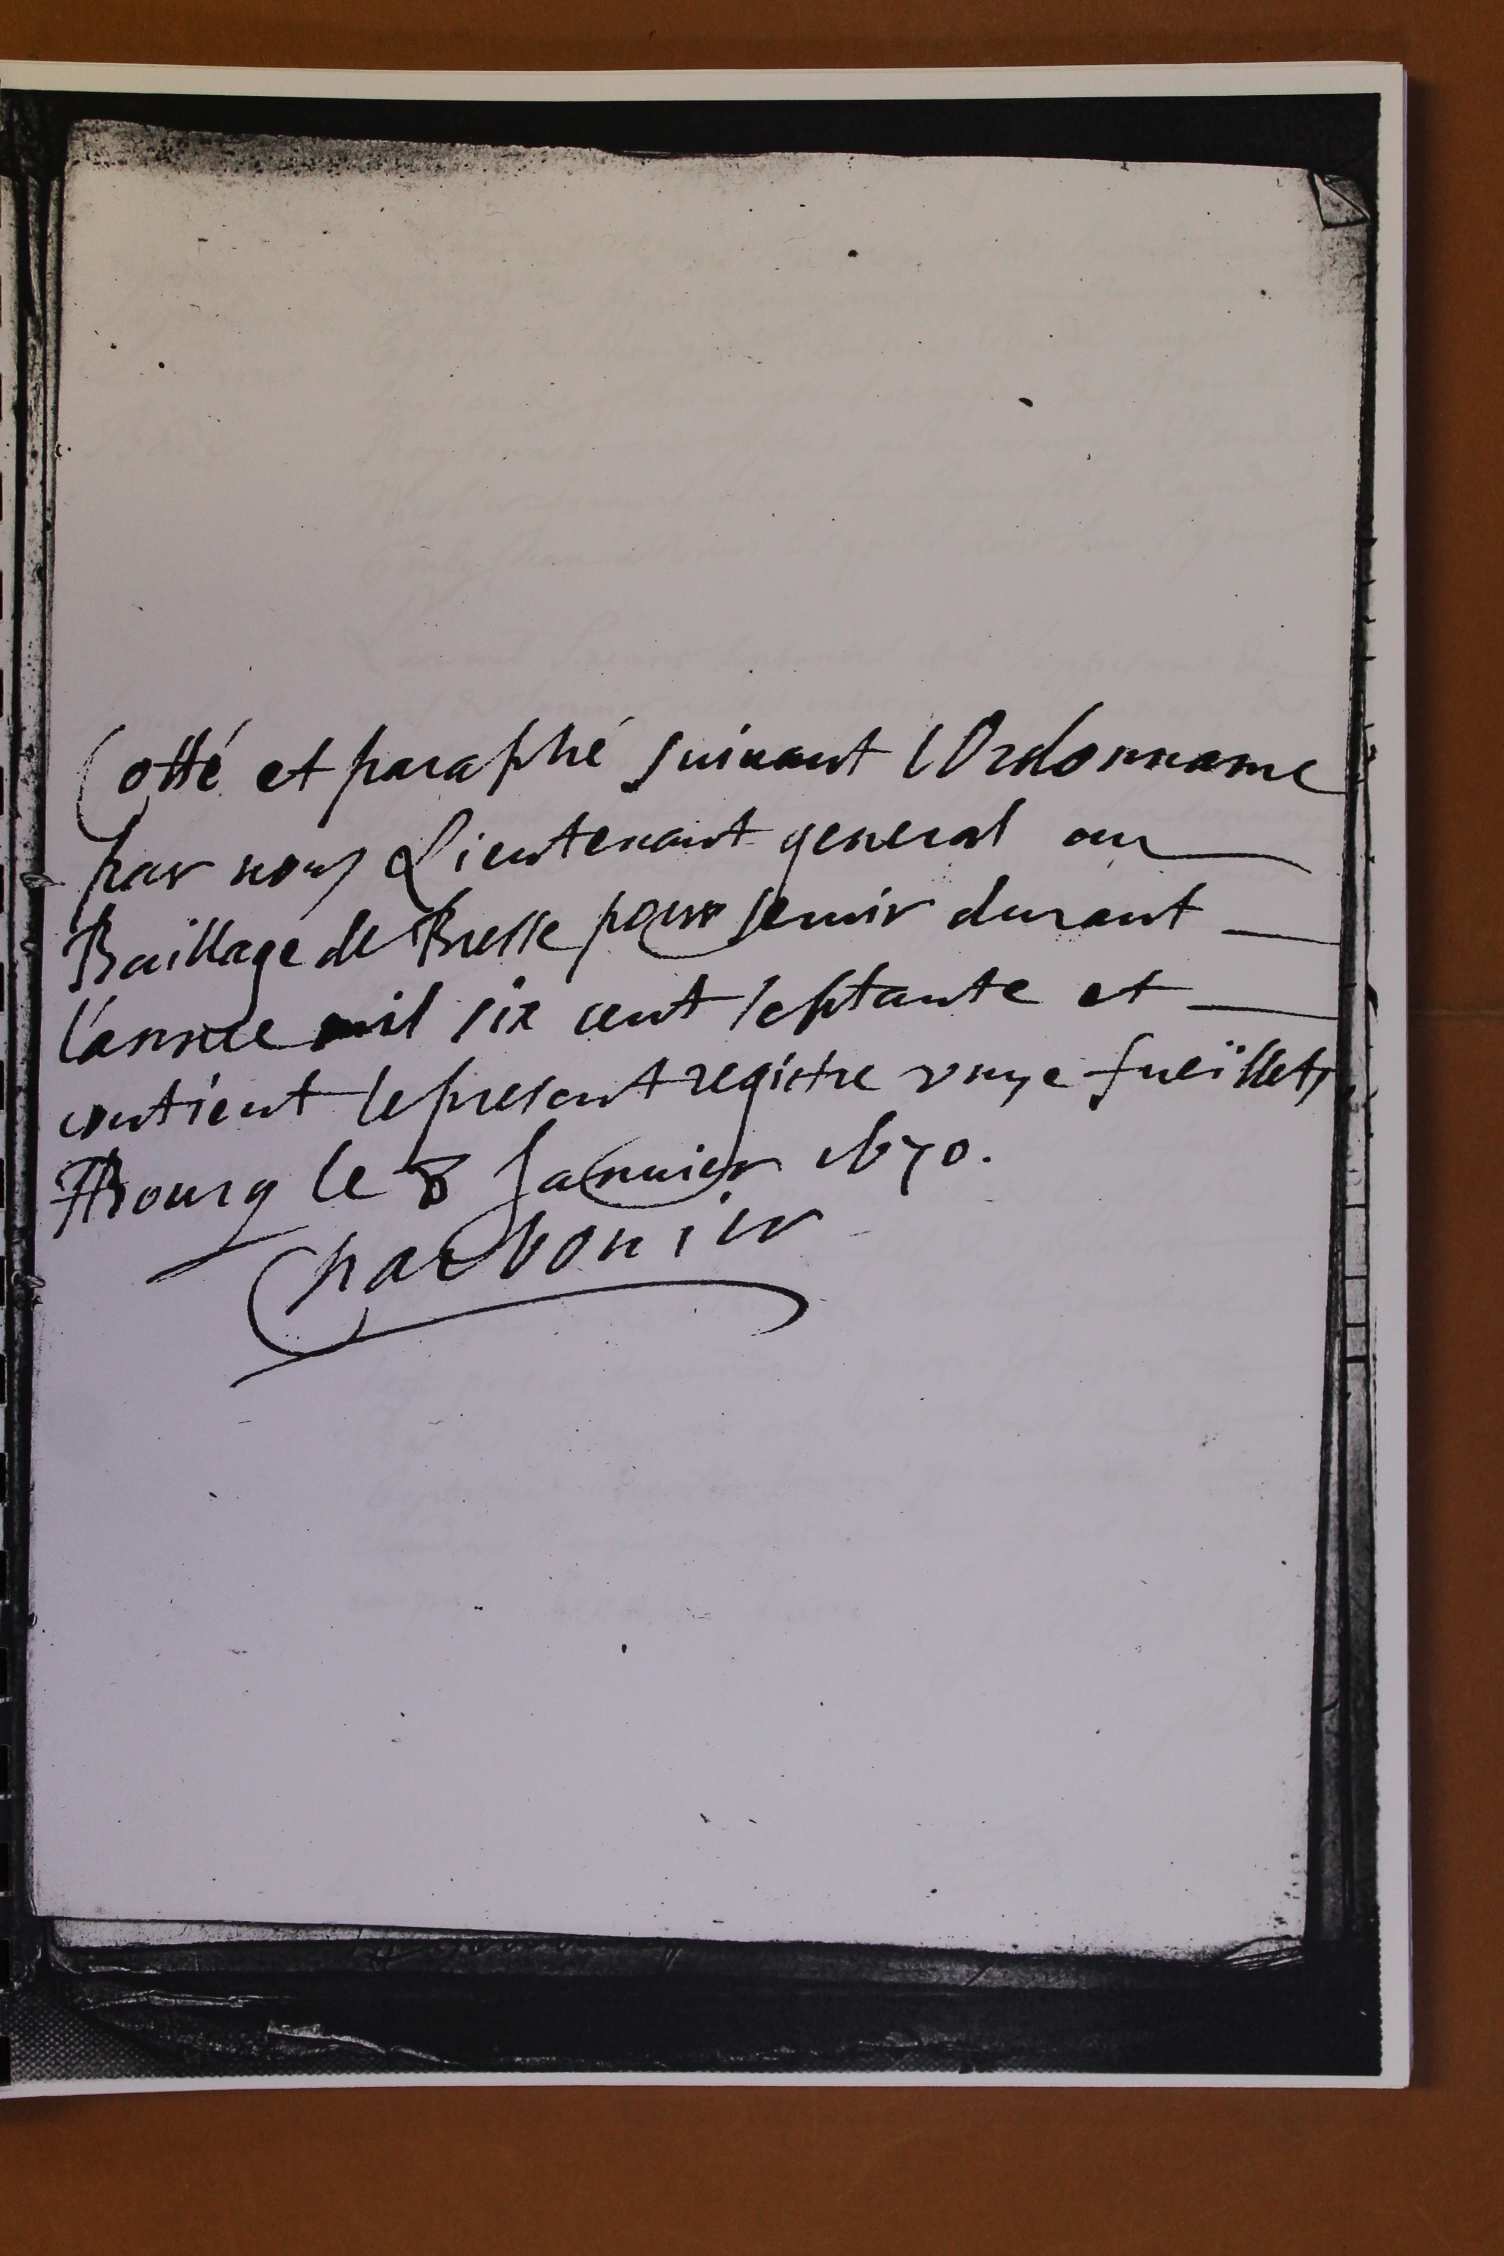 Cotté et paraphé suivant l'Ordonnance
par nous Lieutenant general au
Baillage de Bresse pour servir durant
l'année mil six cent septante et
contient le present registre unze fueïllets,
A Bourg le 8 Januier 1670.
Charbonier